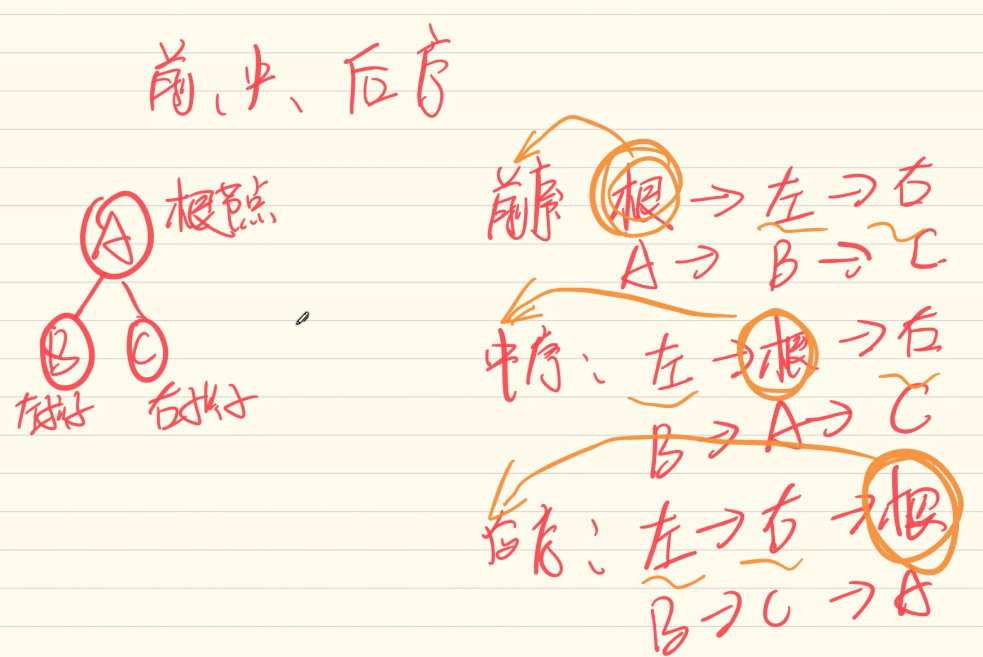 前、中、后序
A 根节点
B C
左孩子 右孩子
前序 根→左→右
A→B→C
中序：左→根→右
B→A→C
后序：左→右→根
B→C→A